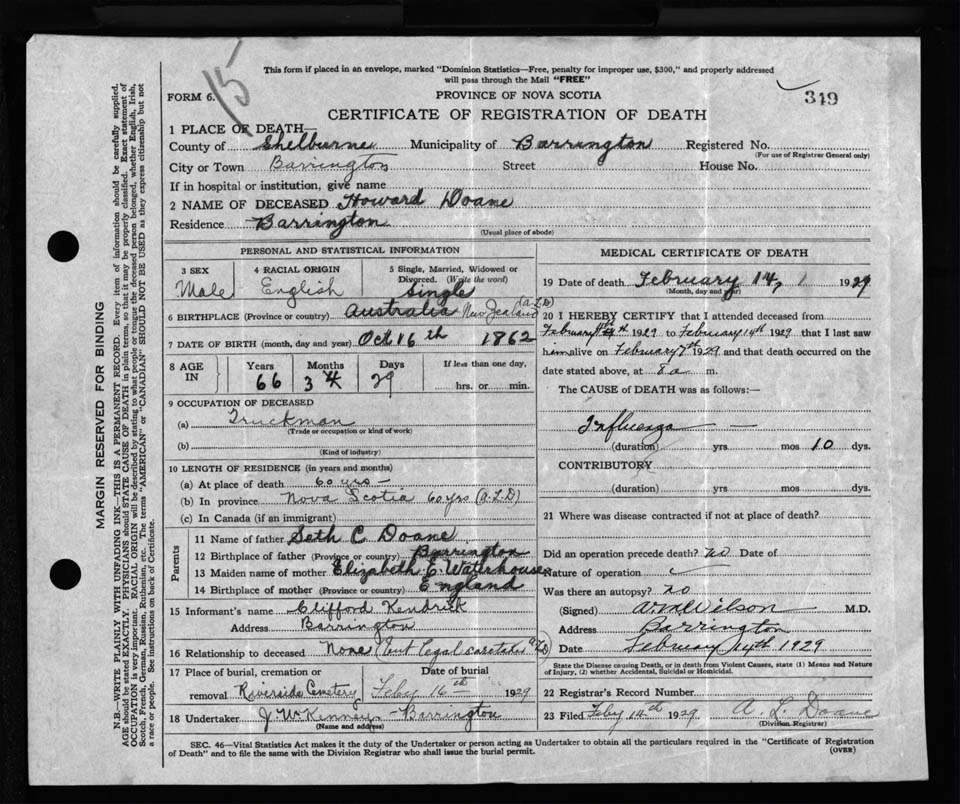 15
This form if placed in an envelope, marked "Dominion Statistics—Free, penalty for improper use, $300," and properly addressed
will pass through the Mail "FREE"
FORM 6.
PROVINCE OF NOVA SCOTIA
349
CERTIFICATE OF REGISTRATION OF DEATH
1 PLACE OF DEATH—
County of Shelburne Municipality of Barrington Registered No.
(For use of Registrar General only)
City or Town Barrington Street House No.
If in hospital or institution, give name
2 NAME OF DECEASED Howard Doane
Residence Barrington
(Usual place of abode)
PERSONAL AND STATISTICAL INFORMATION
3 SEX 4 RACIAL ORIGIN 5 Single, Married, Widowed or
Divorced. (Write the word)
Male English Single
6 BIRTHPLACE (Province or country) Australia New Zealand (A.L.D)
7 DATE OF BIRTH (month, day and year) Oct 16th 1862
8 AGE IN Years Months Days If less than one day,
66 3 4 29 hrs. or min.
9 OCCUPATION OF DECEASED
(a) Truckman
(Trade or occupation or kind of work)
(b)
(Kind of industry)
10 LENGTH OF RESIDENCE (in years and months)
(a) At place of death 60 yrs —
(b) In province Nova Scotia 60 yrs (A.L.D)
(c) In Canada (if an immigrant)
Parents
11 Name of father Seth C Doane
12 Birthplace of father (Province or country) Barrington
13 Maiden name of mother Elizabeth E. Waterhouse
14 Birthplace of mother (Province or country) England
15 Informant's name Clifford Kendrick
Address Barrington
16 Relationship to deceased None (but legal caretaker A.L.D)
17 Place of burial, cremation or Date of burial
removal Riverside Cemetery Feby 16th 1929
18 Undertaker J McKinney - Barrington
(Name and address)
MEDICAL CERTIFICATE OF DEATH
19 Date of death February 14, 1 1929
(Month, day and year)
20 I HEREBY CERTIFY that I attended deceased from
February 4th 1929 to February 14th 1929 that I last saw
him alive on February 7th 1929 and that death occurred on the
date stated above, at 8 a m.
The CAUSE of DEATH was as follows:—
Influenza —
(duration) yrs mos 10 dys.
CONTRIBUTORY
(duration) yrs mos dys.
21 Where was disease contracted if not at place of death?
Did an operation precede death? no Date of
Nature of operation
Was there an autopsy? no
(Signed) Wilson M.D.
Address Barrington
Date February 14th 1929
State the Disease causing Death, or in death from Violent Causes, state (1) Means and Nature
of Injury, (2) whether Accidental, Suicidal or Homicidal.
22 Registrar's Record Number
23 Filed Feby 14th 1929 A. L. Doane
(Division Registrar)
SEC. 46—Vital Statistics Act makes it the duty of the Undertaker or person acting as Undertaker to obtain all the particulars required in the "Certificate of Registration
of Death" and to file the same with the Division Registrar who shall issue the burial permit.
(OVER)
MARGIN RESERVED FOR BINDING
N.B.—WRITE PLAINLY WITH UNFADING INK—THIS IS A PERMANENT RECORD. Every item of information should be carefully supplied.
AGE should be stated EXACTLY. PHYSICIANS should STATE CAUSE OF DEATH in plain terms, so that it may be properly classified. Exact statement of
OCCUPATION is very important. RACIAL ORIGIN will be described by stating to what people or tongue the deceased person belonged, whether English, Irish,
Scotch, French, German, Russian, Ruthenian, etc. The terms "AMERICAN" or "CANADIAN" SHOULD NOT BE USED as they express citizenship but not
a race or people. See instructions on back of Certificate.